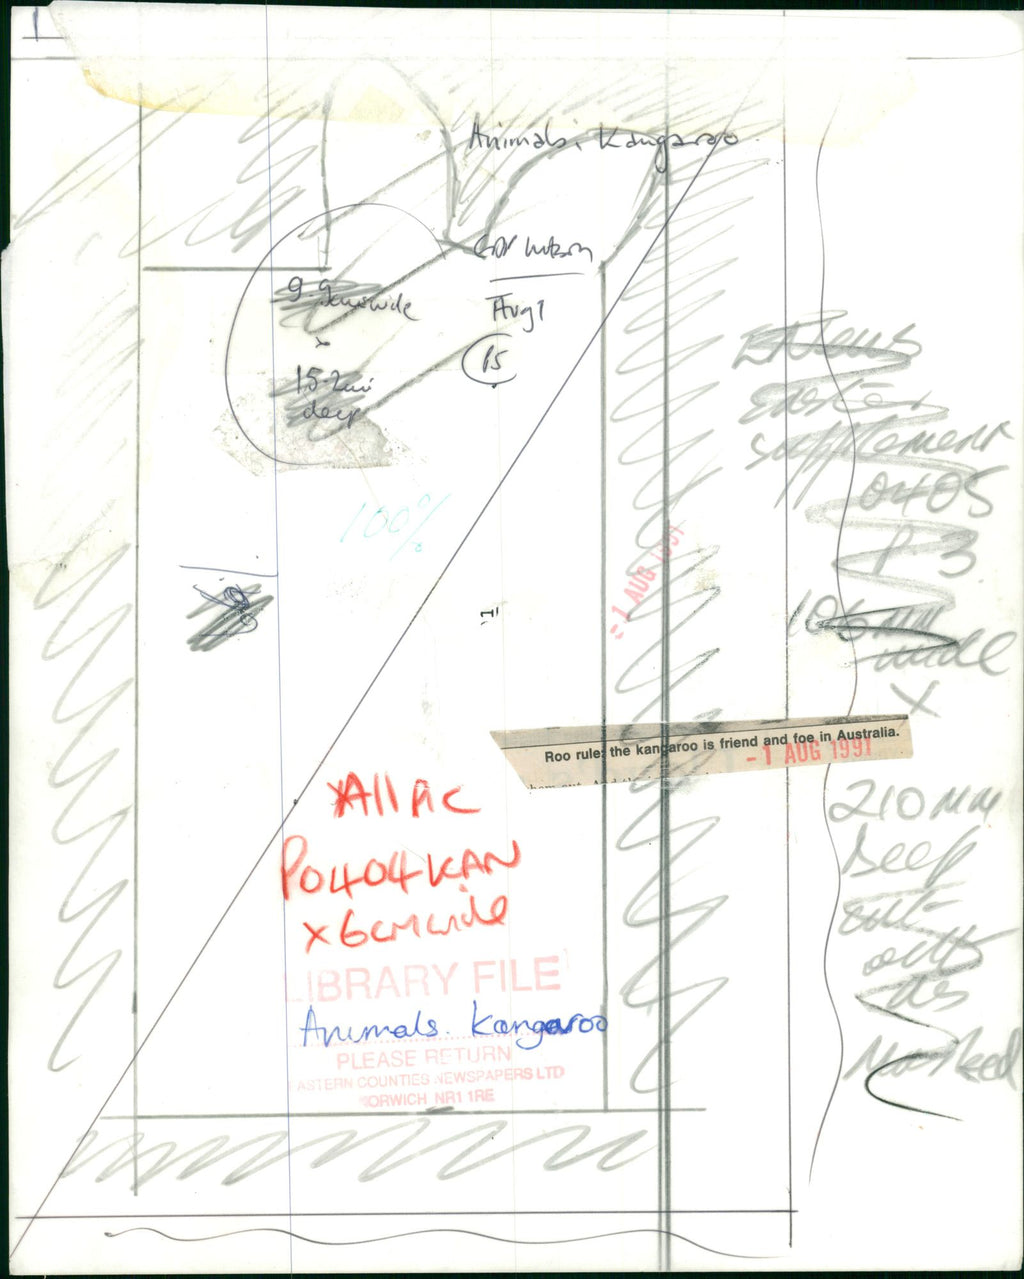 Animals, Kangaroo
9.9cms wide
x
15.2cm
deep
Aug 1
15
100%
supplement
0405
P3
106mm
wide
X
-1 AUG 1991
Roo rule: the kangaroo is friend and foe in Australia.
-1 AUG 1991
210mm
Deep
cut-
outs
as
Marked
P0404KAN
x6cm wide
LIBRARY FILE
Animals. Kangaroo
PLEASE RETURN
EASTERN COUNTIES NEWSPAPERS LTD
NORWICH NR1 1RE